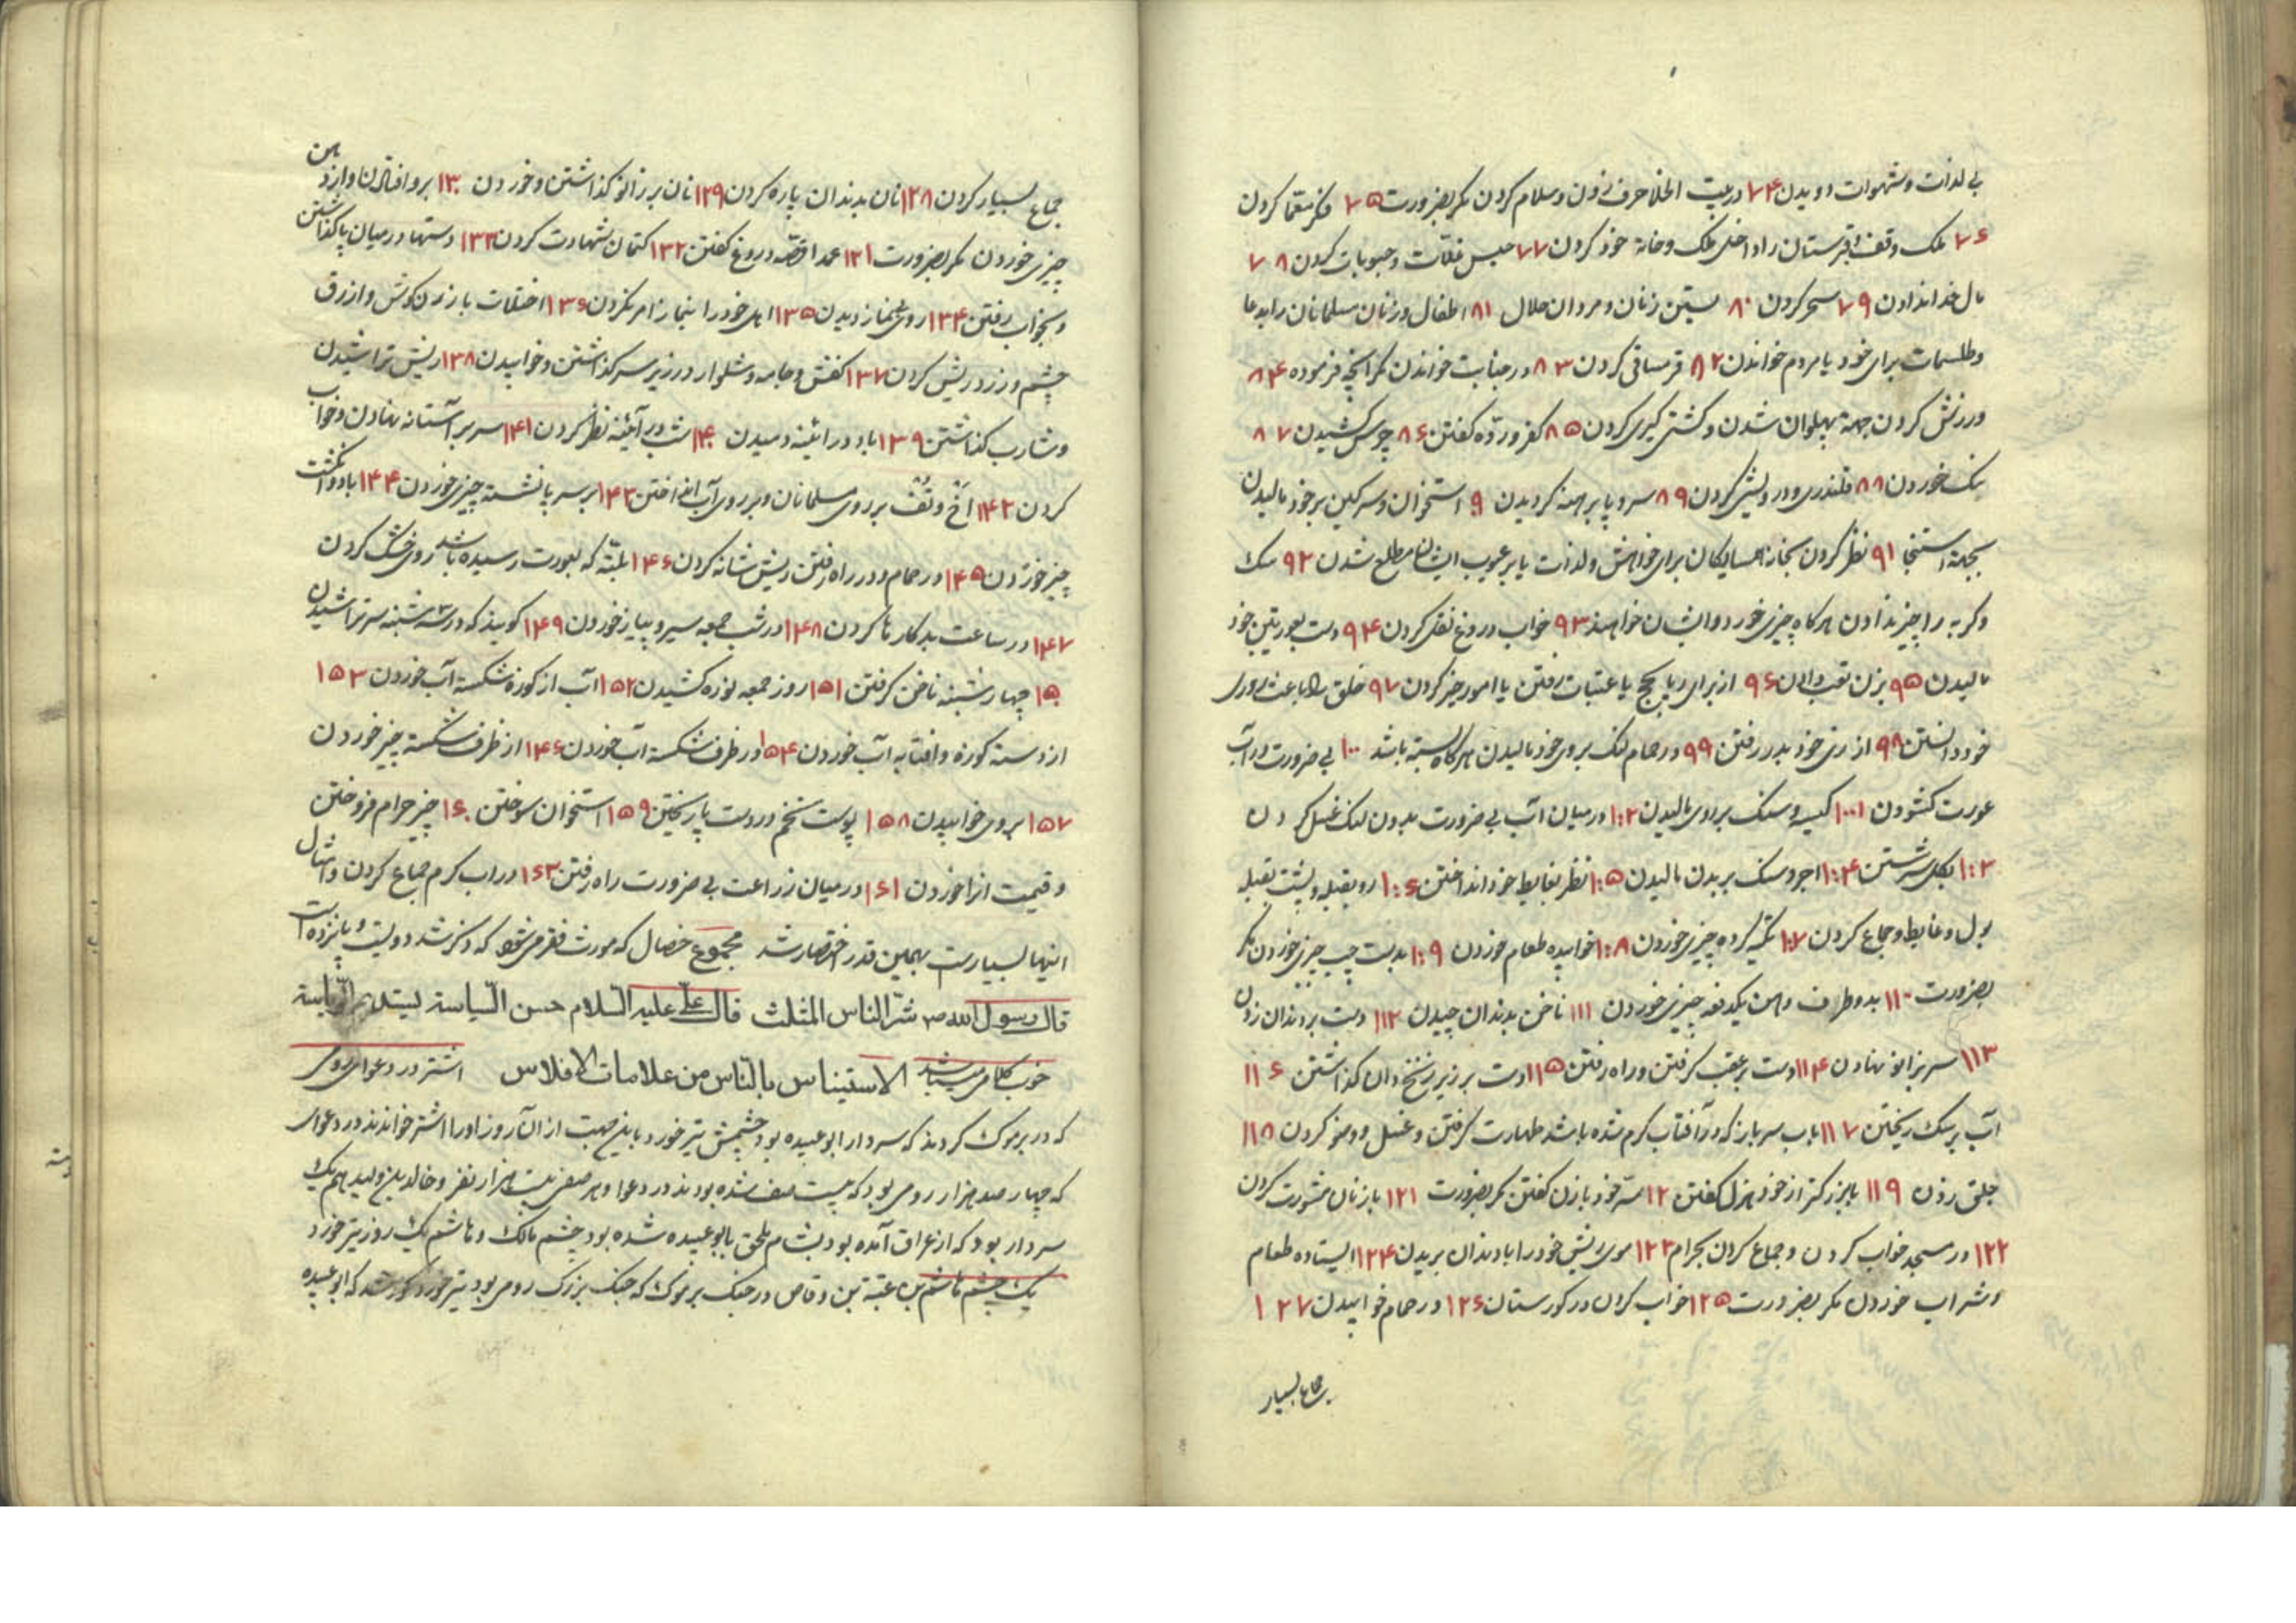 پی لذات و شهوات دویدن ۷۴ در بیت الخلا حرف زدن و سلام کردن مکر بضرورت ۷۵ فکر معما کردن
۷۶ ملک وقف و قبرستان را داخل ملک و خانه خود کردن ۷۷ حبس غلات و حبوبات کردن ۷۸
مال خدا ندادن ۷۹ سحر کردن ۸۰ بستن زنان و مردان حلال ۸۱ اطفال و زنان مسلمانان را بدعا
و طلسمات برای خود یا مردم خواندن ۸۲ قرمساقی کردن ۸۳ در جنابت خواندن مکر آنچه فرموده ۸۴
ورزش کردن جهة پهلوان شدن و کشتی کیری کردن ۸۵ کفر و ردّه کفتن ۸۶ چرس کشیدن ۸۷
بنک خوردن ۸۸ قلندری و درویشی کردن ۸۹ سر و پا برهنه کردیدن ۹۰ استخوان و سرکین بر خود مالیدن
بجهة استنجا ۹۱ نظر کردن بخانه همسایکان برای خواهش و لذات یا بر عیوب ایشان مطلع شدن ۹۲ سک
و کربه را چیز ندادن هرکاه چیزی خورد و ایشان خواهند ۹۳ خواب دروغ نقل کردن ۹۴ دست بعورتین خود
مالیدن ۹۵ بزن نقب دادن ۹۶ از برای ریا بحج یا عتبات رفتن یا امور خیر کردن ۹۷ خلق را باعث روزی
خود دانستن ۹۸ از زی خود بدر رفتن ۹۹ در حمام لنک بروی خود مالیدن هرکاه بسته باشد ۱۰۰ بی ضرورت در آب
عورت کشودن ۱۰۰۱ کیسه و سنک بر روی مالیدن ۱۰۲ در میان آب بی ضرورت بدون لنک غسل کردن
۱۰۳ بکل سر شستن ۱۰۴ اجر و سنک بر بدن مالیدن ۱۰۵ نظر بغایط خود انداختن ۱۰۶ رو بقبله و پشت بقبله
بول و غایط و جماع کردن ۱۰۷ تکیه کرده چیزی خوردن ۱۰۸ خوابیده طعام خوردن ۱۰۹ بدست چپ چیزی خوردن مکر
بضرورت ۱۱۰ بدو طرف دهن یکدفعه چیزی خوردن ۱۱۱ ناخن بدندان چیدن ۱۱۲ دست بر دندان زدن
۱۱۳ سر بزانو نهادن ۱۱۴ دست بر عقب کرفتن و راه رفتن ۱۱۵ دست بر زیر زنخدان کذاشتن ۱۱۶
آب بر سک ریختن ۱۱۷ باب سر باز که در آفتاب کرم شده باشد طهارت کرفتن و غسل و وضو کردن ۱۱۸
جلق زدن ۱۱۹ با بزرکتر از خود هزل کفتن ۱۲۰ سرّ خود با زن کفتن مکر بضرورت ۱۲۱ با زنان مشورت کردن
۱۲۲ در مسجد خواب کردن و جماع کردن بحرام ۱۲۳ موی ریش خود را با دندان بریدن ۱۲۴ ایستاده طعام
و شراب خوردن مکر بضرورت ۱۲۵ خواب کردن در کورستان ۱۲۶ در حمام خوابیدن ۱۲۷
جماع بسیار
جماع بسیار کردن ۱۲۸ نان بدندان پاره کردن ۱۲۹ نان بر زانو کذاشتن و خوردن ۱۳۰ برو افتادن و از دهن
چیزی خوردن مکر بضرورت ۱۳۱ عمدا قصّه دروغ کفتن ۱۳۲ کتمان شهادت کردن ۱۳۳ دستها در میان پا کذاشتن
و بخواب رفتن ۱۳۴ روی غماز دیدن ۱۳۵ اهل خود را بنماز امر نکردن ۱۳۶ اختلاط با زن کوش و ازرق
چشم و زرد ریش کردن ۱۳۷ کفش و جامه و شلوار در زیر سر کذاشتن و خوابیدن ۱۳۸ ریش تراشیدن
و شارب کذاشتن ۱۳۹ باد در ائینه دمیدن ۱۴۰ شب در آئینه نظر کردن ۱۴۱ سر بر آستانه نهادن و خواب
کردن ۱۴۲ اخ و تف بر روی مسلمانان و بر روی آب انداختن ۱۴۳ بر سر پا نشسته چیزی خوردن ۱۴۴ با دو انکشت
چیز خوردن ۱۴۵ در حمام و در راه رفتن ریش شانه کردن ۱۴۶ بلته که بعورت رسیده باشد روی خشک کردن
۱۴۷ در ساعت بد کارها کردن ۱۴۸ در شب جمعه سیر و پیاز خوردن ۱۴۹ کویند که در سه شنبه سر تراشیدن
۱۵۰ چهارشنبه ناخن کرفتن ۱۵۱ روز جمعه نوره کشیدن ۱۵۲ آب از کوزه شکسته آب خوردن ۱۵۳
از دسته کوزه و افتابه آب خوردن ۱۵۴ در ظرف شکسته آب خوردن ۱۴۶ از ظرف شکسته چیز خوردن
۱۵۷ بروی خوابیدن ۱۵۸ پوست تخم در دست پا ریختن ۱۵۹ استخوان سوختن ۱۶۰ چیز حرام فروختن
و قیمت انرا خوردن ۱۶۱ در میان زراعت بی ضرورت راه رفتن ۱۶۳ در اب کرم جماع کردن و امثال
اینها بسیارست بهمین قدر اختصار شد مجموع خصال که مورث فقر می شود که ذکر شد دویست و پانزده است
قال رسول الله ص شرّ الناس المثلث قال علی علیه السّلام حسن السّیاسة یستدیم الرّیاسة
خوب کلامی میباشد الاستیناس بالنّاس من علامات الافلاس اشتر در دعوای رومی
که در یرموک کردند که سردار ابو عبیده بود چشمش تیر خورد باین جهت از آن روز او را اشتر خواندند در دعوای
که چهار صد هزار رومی بود که بیست صف شده بودند در دعوا و هر صفی بیست هزار نفر و خالد بن ولید هم یک
سردار بود که از عراق آمده بود بشام ملحق بابو عبیده شده بود چشم مالک و هاشم یک روز تیر خورد
یک چشم هاشم بن عتبة بن وقاص در جنک یرموک که جنک بزرک رومی بود تیر خورد کور شد که ابو عبیده